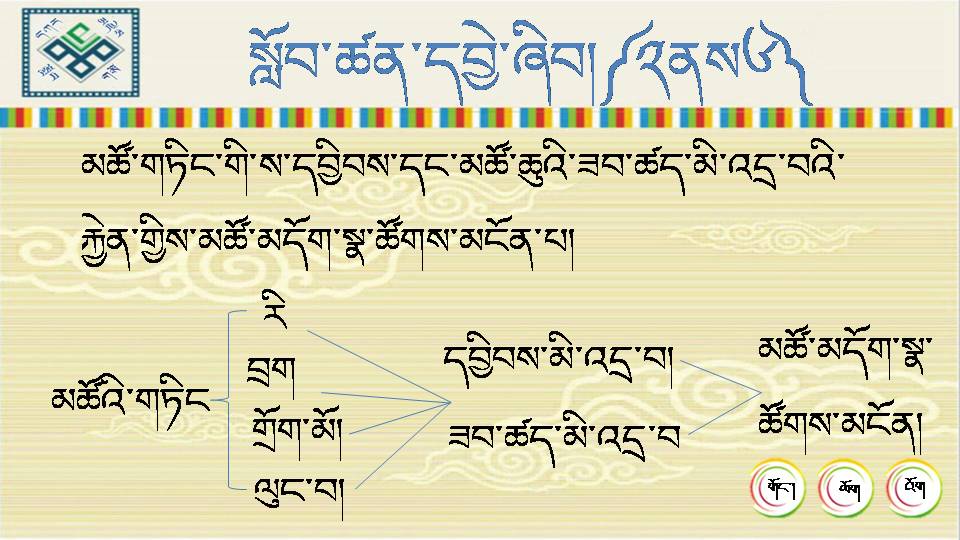 སློབ་ཚན་དབྱེ་ཞིབ། ༼༢ནས༦༽
མཚོ་གཏིང་གི་ས་དབྱིབས་དང་མཚོ་ཆུའི་ཟབ་ཚད་མི་འདྲ་བའི་
རྐྱེན་གྱིས་མཚོ་མདོག་སྣ་ཚོགས་མངོན་པ།
མཚོའི་གཏིང
རི
བྲག
གྲོག་མོ།
ལུང་བ།
དབྱིབས་མི་འདྲ་བ།
ཟབ་ཚད་མི་འདྲ་བ
མཚོ་མདོག་སྣ་
ཚོགས་མངོན།
གོང་།
འོག